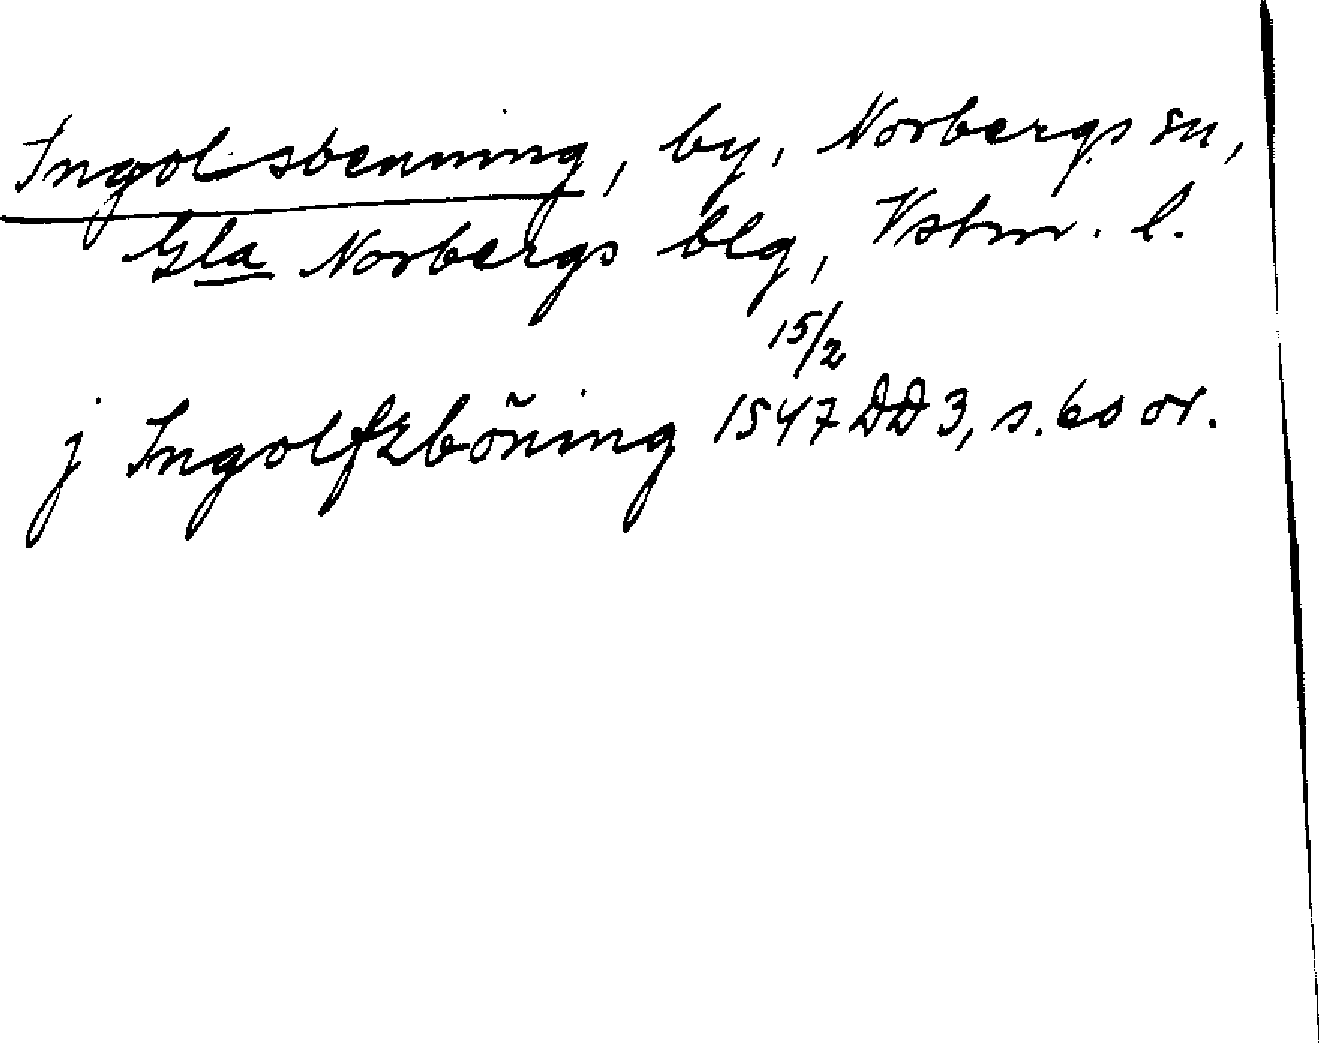 Ingolsbenning, by, Norbergs sn,
Gla Norbergs blg, Vstm. l.
15/2
j Ingolfzbōning 1547 DD 3, s. 60 or.